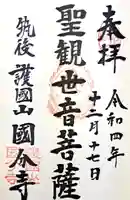 奉拝
令和四年
十二月十七日
聖観世音菩薩
筑後
護國山國分寺